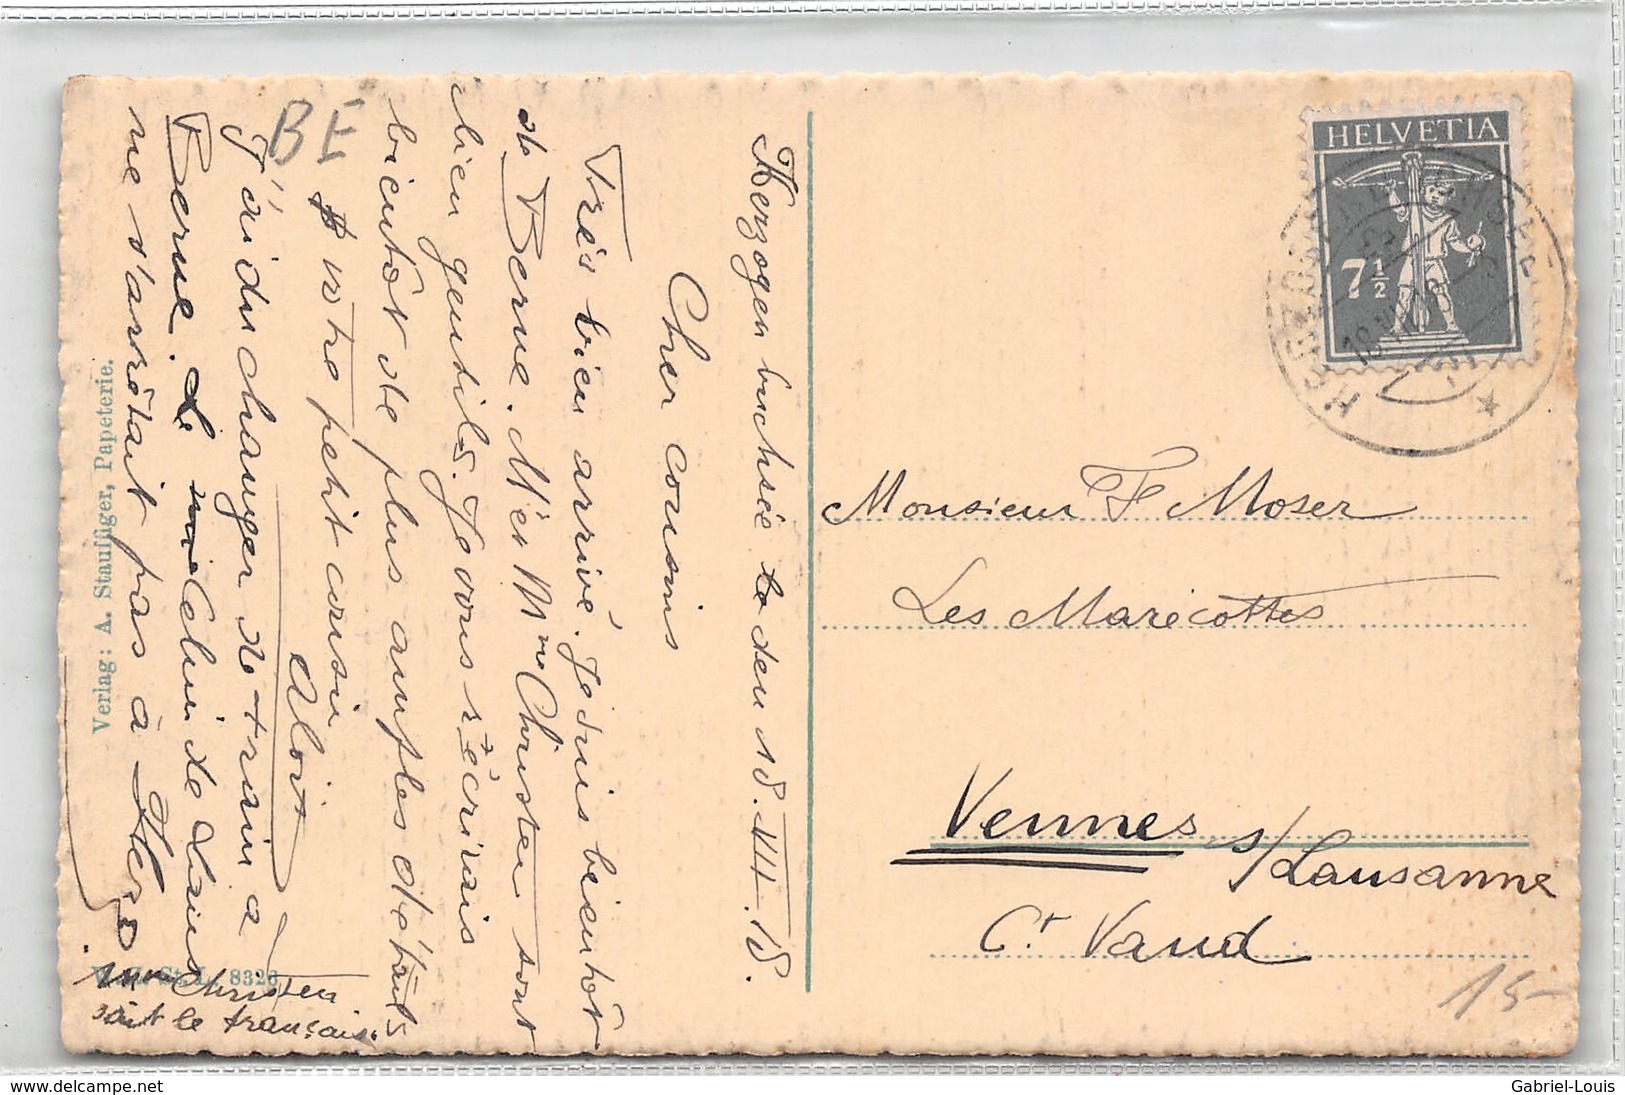 Herzogenbuchsée le den 18.VII.18.
Cher cousins
Très bien arrivé. Je suis bientôt
de Berne. M. et Mme Christen sont
bien gentils. Je vous récrirais
bientôt de plus amples détails
votre petit cousin
J'ai du changer de train à
Berne. Celui de
ne s'arrêtait pas à Herz
Mme Christen
sait le français.
BE
Verlag: A. Stauffiger, Papeterie.
8326
HELVETIA
7½
HERZOGENBUCHSEE
Monsieur F Moser
Les Marécottes
Vennes s/Lausanne
Ct. Vaud
15-
www.delcampe.net
Gabriel-Louis